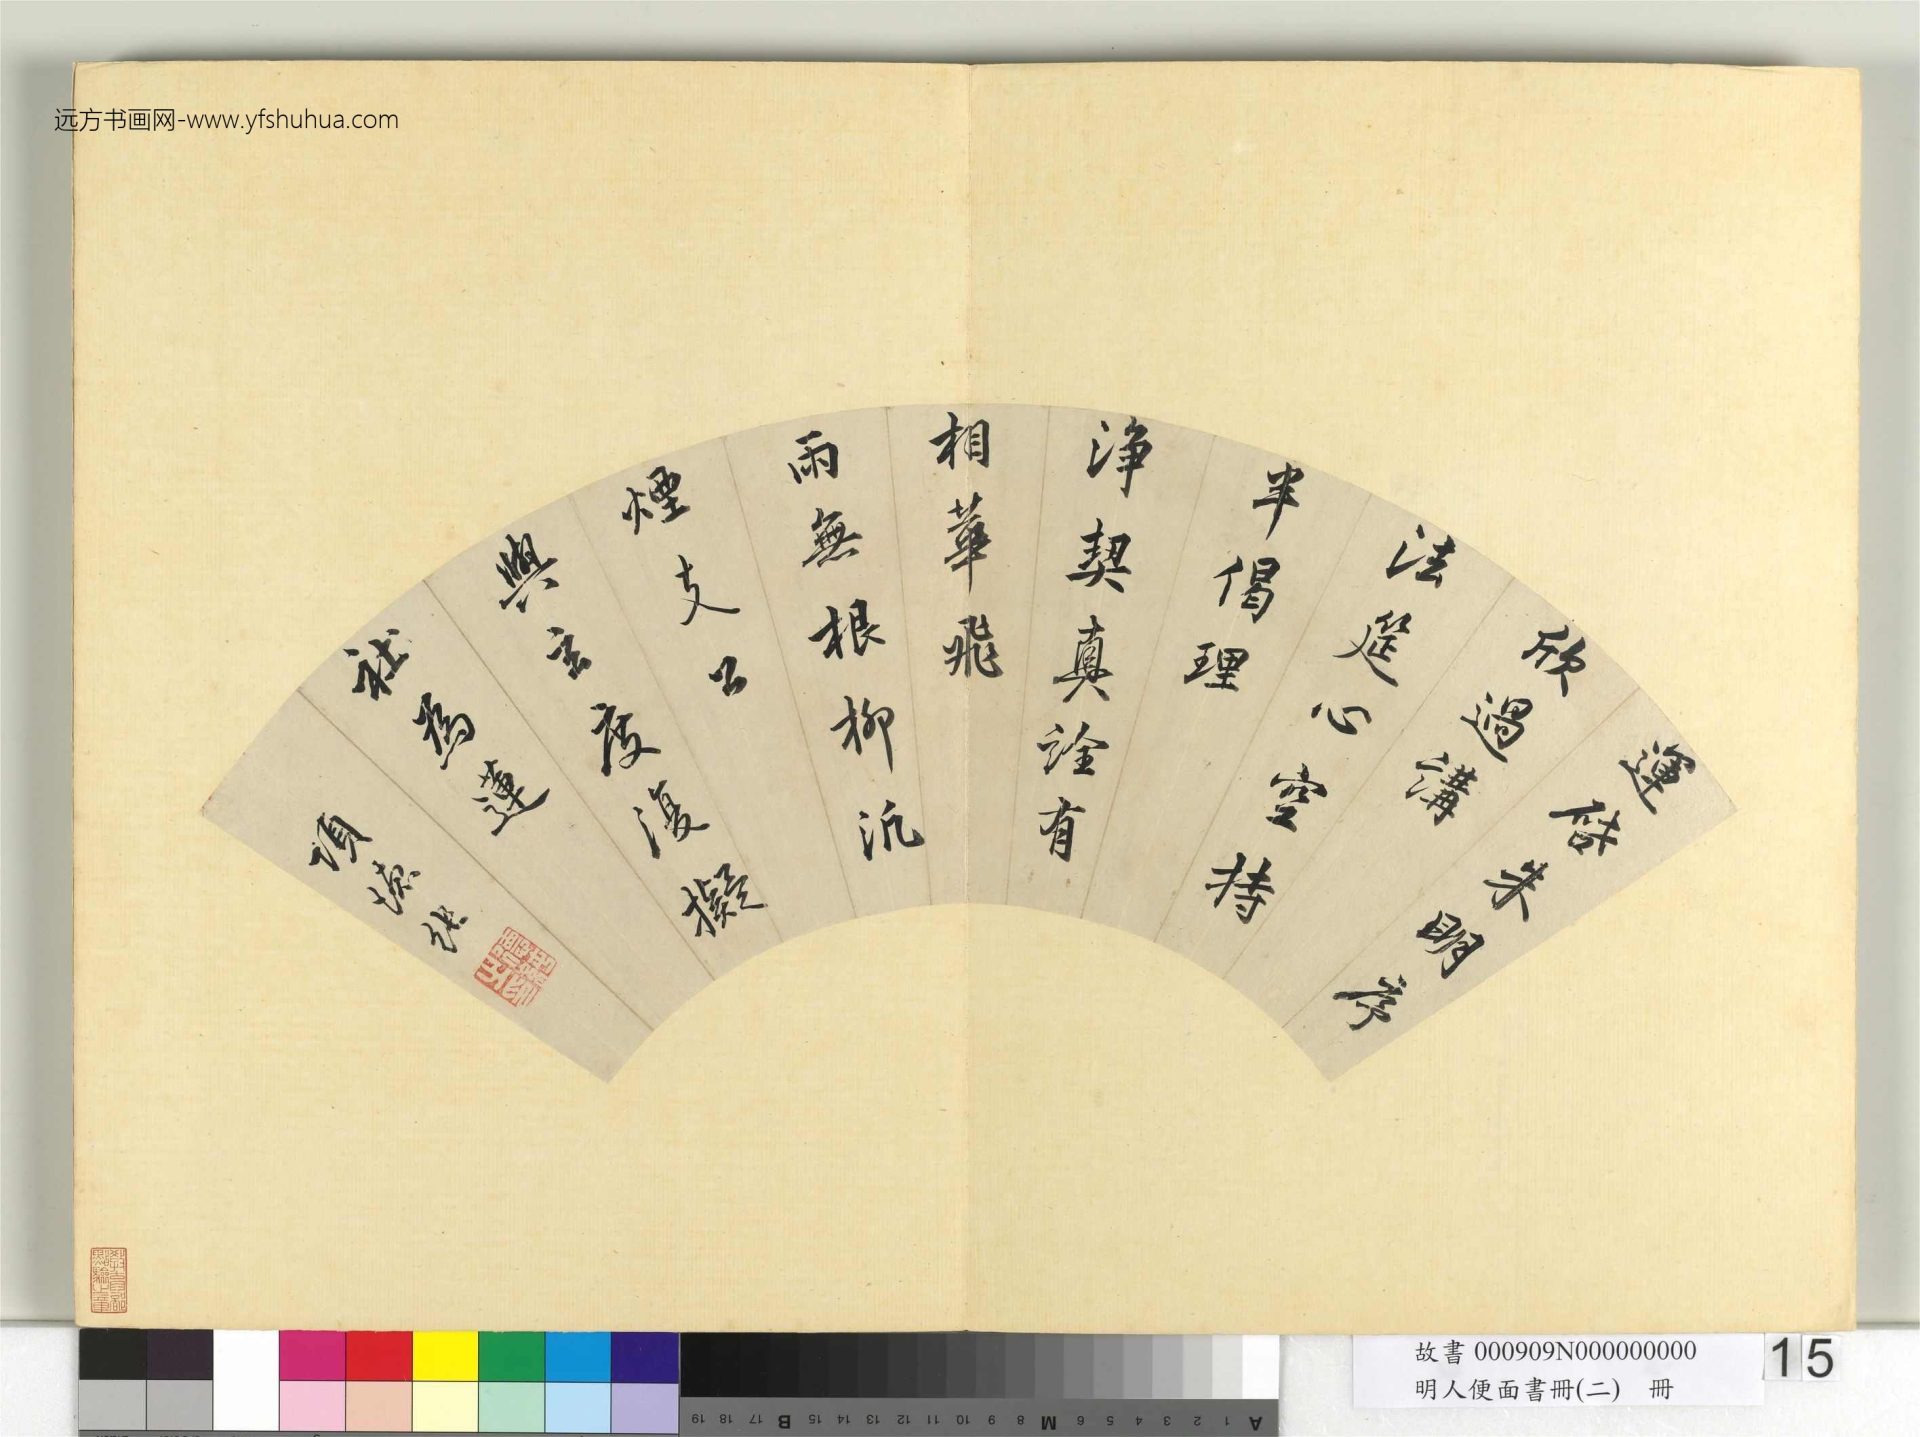 远方书画网-www.yfshuhua.com
運啟朱明序
欣過講
法筵心空持
半偈理
淨契真詮有
相華飛
雨無根柳汎
煙支公
與玄度復擬
社為蓮
項德
教育部點驗之章
A 1 2 3 4 5 6 M 8 9 10 11 12 13 14 15 B 17 18 19
故書 000909N000000000
明人便面書冊(二) 冊
15